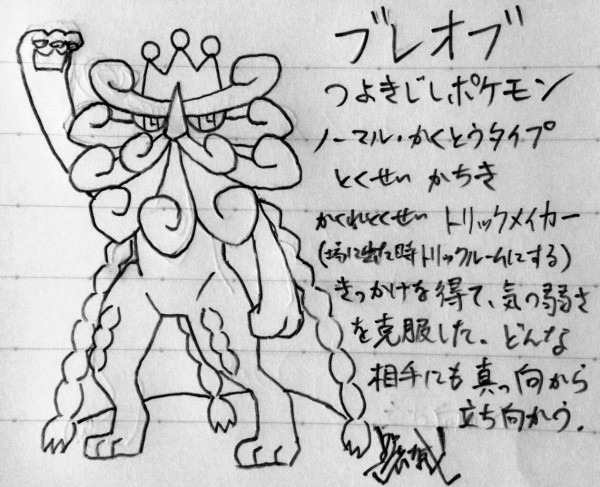 ブレオブ
つよきじしポケモン
ノーマル・かくとうタイプ
とくせい かちき
かくれとくせい トリックメイカー
(場に出た時トリックルームにする)
きっかけを得て、気の弱さ
を克服した。どんな
相手にも真っ向から
立ち向かう。